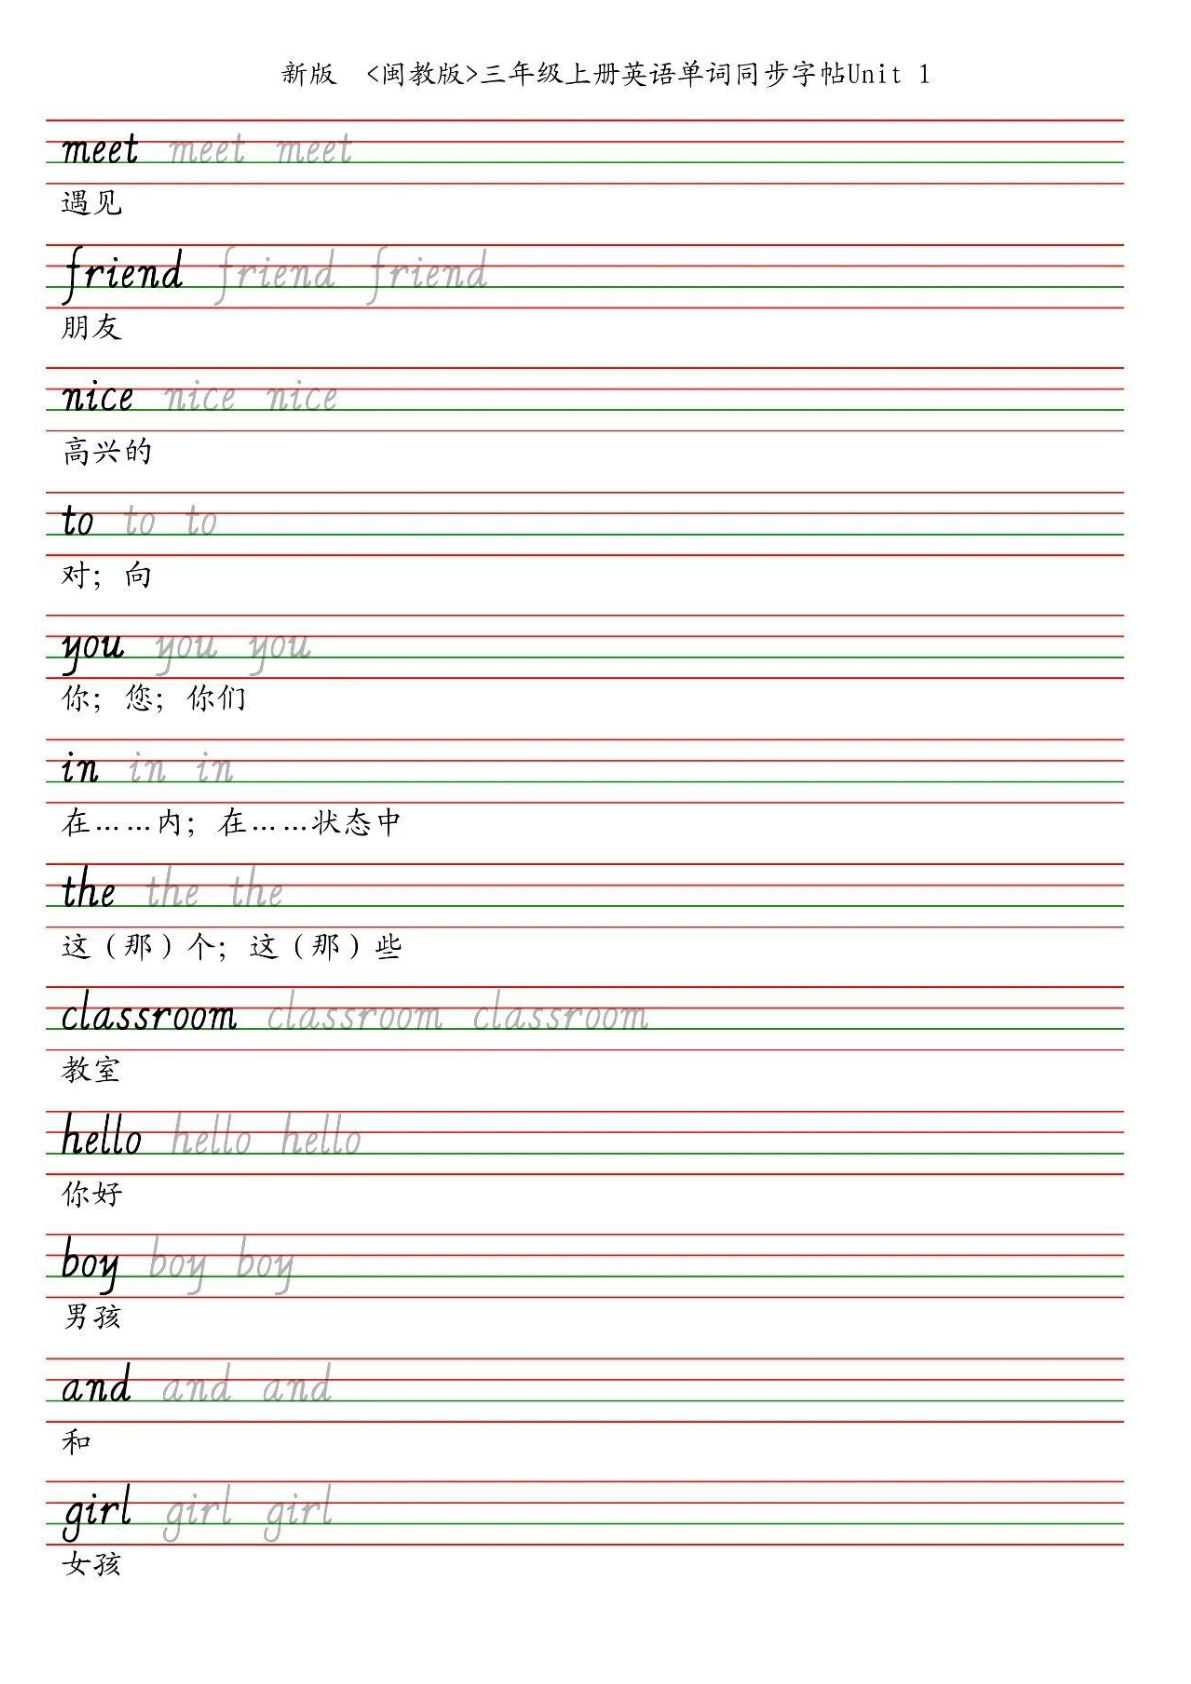 新版 <闽教版>三年级上册英语单词同步字帖Unit 1
meet meet meet
遇见
friend friend friend
朋友
nice nice nice
高兴的
to to to
对；向
you you you
你；您；你们
in in in
在……内；在……状态中
the the the
这（那）个；这（那）些
classroom classroom classroom
教室
hello hello hello
你好
boy boy boy
男孩
and and and
和
girl girl girl
女孩